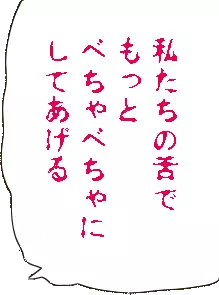 私たちの舌で
もっと
べちゃべちゃに
してあげる